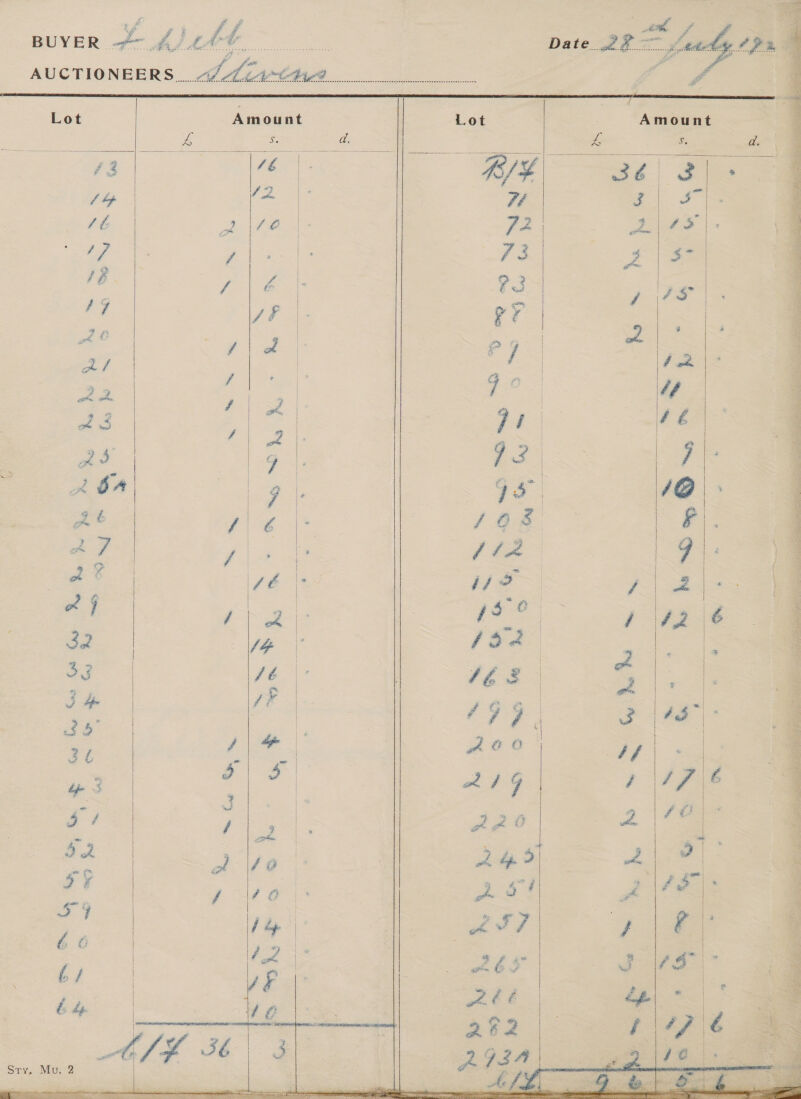 BUYER F Webb
Date 28th July 192
AUCTIONEERS Stevens
Lot Amount
£ s. d.
13 16 .
14 12 .
16 2 10 .
17 1 . .
18 1 6 .
19 18 .
20 1 2 .
21 1 . .
22 1 2 .
23 1 2 .
25 9 .
25A 9 .
26 1 6 .
27 1 . .
28 16 .
29 1 2 .
32 14 .
33 16 .
34 18 .
35 1 4 .
36 5 5
43 3 .
51 1 2 .
52 2 10 .
58 1 10 .
59 14 .
60 12 .
61 18
64 10
C/F 36 3
Sty. Mu. 2
Lot Amount
£ s. d.
B/F 36 3 .
71 3 5 .
72 2 15 .
73 2 5
83 1 15 .
88 2 . .
89 12 .
90 11
91 16
93 9 .
95 10 .
103 8 .
112 9 .
115 1 2 .
150 1 12 6
152 2 . .
163 2 . .
199 3 15 .
200 11 .
219 1 17 6
220 2 10 .
245 2 5 .
251 2 15 .
257 1 8 .
265 3 15 .
266 4 . .
282 1 17 6
293A 2 10 .
C/F 96 5 6